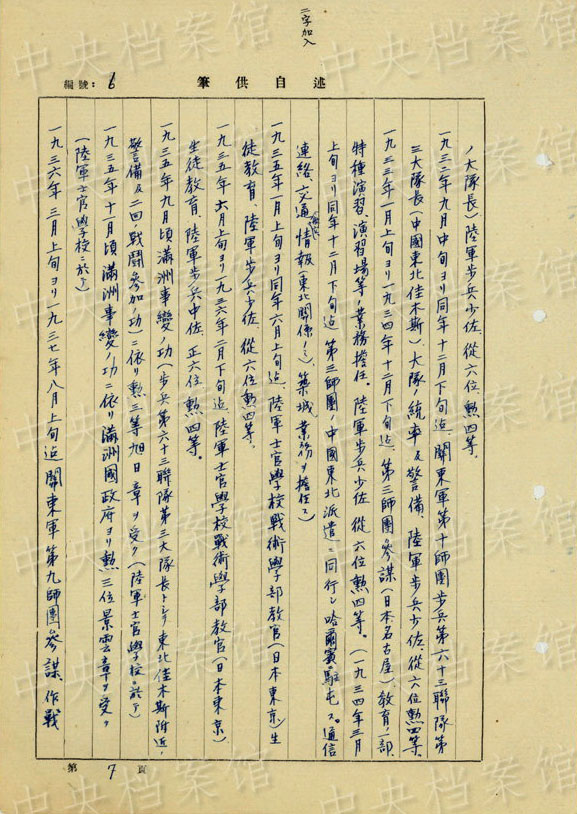 二字加入
編號：6
筆供自述
ノ大隊長）陸軍步兵少佐、從六位、勲四等、
一九三二年九月中旬ヨリ同年十二月下旬迠 関東軍第十師團步兵第六十三聯隊第
三大隊長（中國東北佳木斯）、大隊ノ統率及警備、陸軍步兵少佐、從六位勲四等。
一九三三年一月上旬ヨリ一九三四年十二月下旬迠、第三師團參謀（日本名古屋）、教育ノ一部、
特種演習、演習場等ノ業務擔任。陸軍步兵少佐 從六位勲四等。（一九三四年三月
上旬ヨリ同年十二月下旬迠 第三師團ノ中國東北派遣ニ同行シ哈爾賓ニ駐屯ス。通信
連絡、交通、情報（東北関係ノミ）、築城ノ業務ヲ擔任ス）
一九三五年一月上旬ヨリ同年六月上旬迠、陸軍士官學校戰術學部教官（日本東京）生
徒教育、陸軍步兵少佐、從六位勲四等、
一九三五年六月上旬ヨリ一九三六年二月下旬迠、陸軍士官學校戰術學部教官（日本東京）
生徒教育、陸軍步兵中佐、正六位勲四等。
一九三五年九月頃滿洲事變ノ功（步兵第六十三聯隊第三大隊長トシテ東北佳木斯附近ノ
警備及二回戰闘參加ノ功）ニ依リ勲三等旭日章ヲ受ク（陸軍士官學校ニ於テ）
一九三五年十一月頃滿洲事變ノ功ニ依リ滿洲國政府ヨリ勲三位景雲章ヲ受ク
（陸軍士官學校ニ於テ）
一九三六年三月上旬ヨリ一九三七年八月上旬迠 関東軍第九師團參謀、作戰
第7頁
中央档案馆
中央档案馆
中央档案馆
中央档案馆
中央档案馆